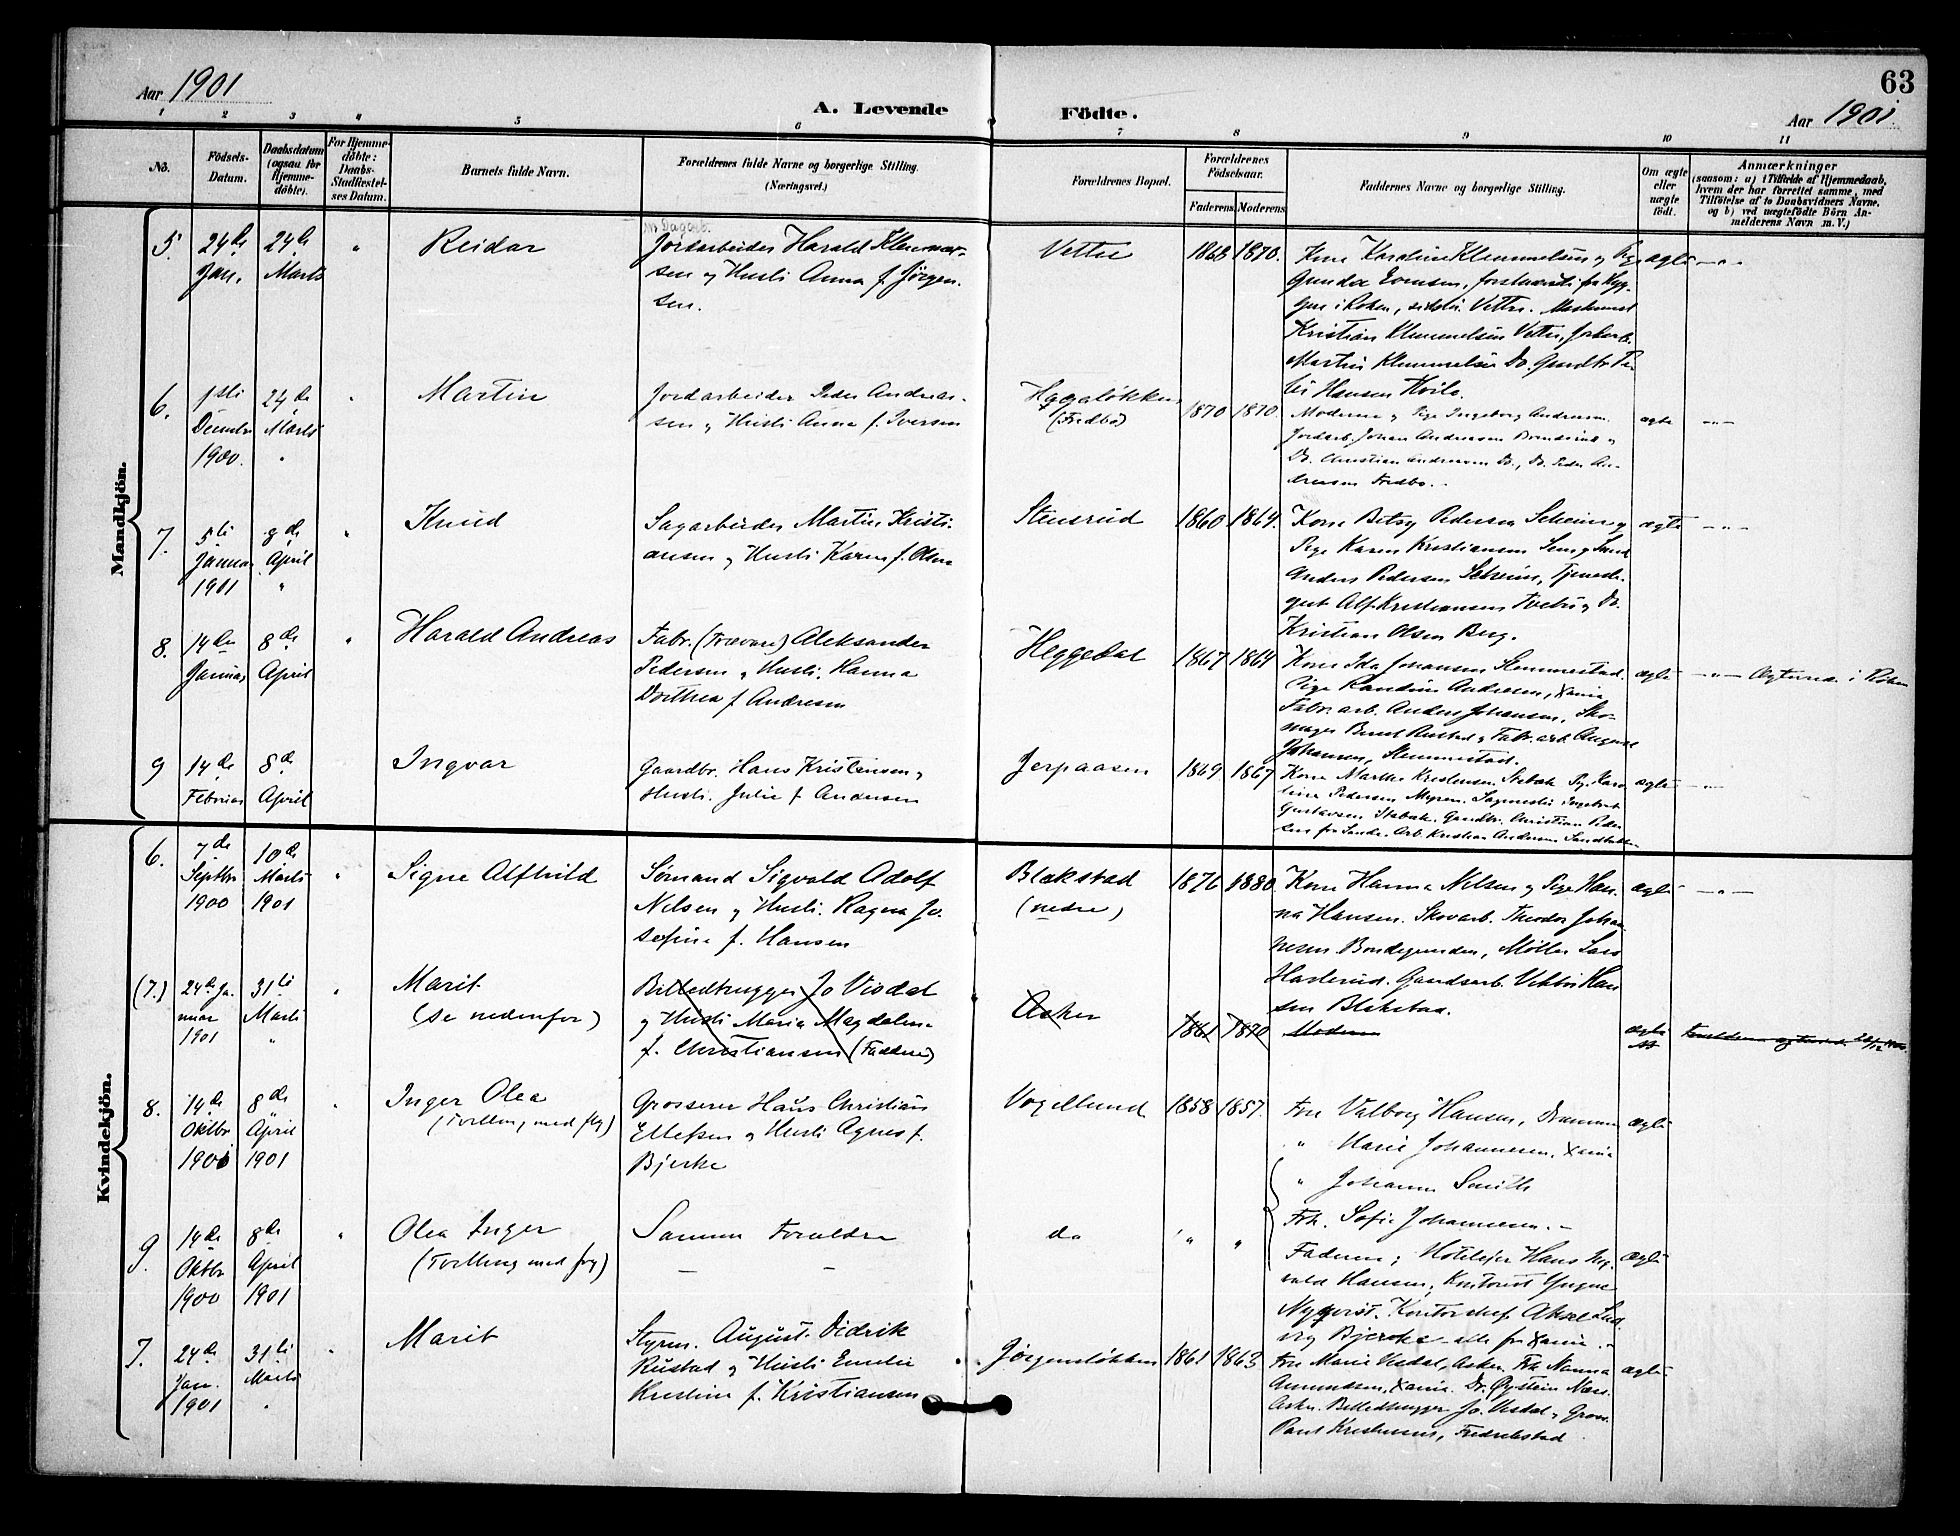 63
Aar 1901
A. Levende Födte.
Aar 1901.
1 2 3 4 5 6 7 8 9 10 11
No.
Födsels-Datum.
Daabsdatum (ogsaa for Hjemme-döbte).
For Hjemme-döbte: Daabs-Stadfæstel-ses Datum.
Barnets fulde Navn.
Forældrenes fulde Navne og borgerlige Stilling.
(Næringsvei.)
Forældrenes Bopæl.
Forældrenes Födselsaar.
Faderens Moderens
Faddernes Navne og borgerlige Stilling.
Om ægte eller uægte födt.
Anmærkninger
(saasom: a) i Tilfælde af Hjemmedaab, hvem der har forrettet samme, med Tilföielse af to Daabsvidners Navne, og b) ved uægtefödte Börn An-melderens Navn m. V.)
Mandkjön.
5. 24de Jan. 24de Marts " Reidar
Jordarbeider Harald Klemmet-
sen og Hustru Anna f. Jørgen-
sen.
Vettre 1868 1870.
Kone Karoline Klemmetsen og Pige
Gunda Evensen,
Kristian Klemmetsen Vettre, Jordarb.
Martin Klemmetsen Do.
Hansen Hvile.
ægte
6. 1ste Decembr 1900. 24de Marts " Martin
Jordarbeider Peder Andreas-
sen og Hustru Anna f. Iversen
Hagaløkken
(Fredbo)
1870 1870.
Moderen og Pige Ingeborg Andresen.
Jordarb. Johan Andreasen
Do. Christian Andreasen Do., Do. Peder An-
dreasen Fredbo.
ægte
7. 5te Januar 1901 8de April " Knud
Sagarbeider Martin Kristi-
ansen og Hustru Karen f. Olsen
Stensrud 1860 1864.
Kone Betsy Pedersen
Pige Karen Kristiansen
Anders Pedersen
Alf Kristiansen
Kristian Olsen Berg.
ægte
8. 14de Januar 8de April " Harald Andreas
Fabr. (Trævare) Aleksander
Pedersen og Hustru Hanna
Dorthea f. Andresen
Heggedal 1867 1864
Kone Ida Johansen Slemmestad.
Pige Randine Andresen, Xania
Fabr. arb. Anders Johansen, Sko-
mager Bernt Rustad og Fabr. arb. August
Johansen, Slemmestad.
ægte
9 14de Februar 8de April Ingvar
Gaardbr. Hans Kristensen og
Hustru Julie f. Andersen
Jerpaasen 1869 1867
Kone Marthe Kristensen Stabæk. Pige Karo-
line Pedersen Myren.
Gustavsen Stabæk. Gaardbr. Christian Peder-
sen fra Sande. Arb. Kristian Andersen
ægte
Kvindekjön.
6. 7de Septbr 1900 10de Marts 1901 " Signe Alfhild
Sømand Sigvald Adolf
Nelsen og Hustru Ragna Jo-
sefine f. Hansen
Blakstad
(nedre)
1876 1880.
Kone Hanna Nilsen og Pige Han-
na Hansen. Skovarb. Theodor Johan-
nesen Bondegrænden, Møller Lars
Gaardsarb. Viktor Han-
sen Blakstad.
ægte
(7.) 24de Ja-
nuar
1901
31te Marts " Marit
(se nedenfor)
Billedhugger Jo Visdal
og Hustru Maria Magdalena
f. Christiansen (Faddere)
Asker 1861 1870
Moderen
ægte
8. 14de Oktbr 1900 8de April 1901 Inger Olea
(Tvilling med flg)
Grosserer Hans Christian
Ellefsen og Hustru Agnes f.
Bjerke
Vogellund 1858 1857.
Fru Valborg Hansen, Drammen
" Marie Johannesen, Xania
" Johanne Smith
Frk. Sofie Johannesen.
ægte
9. 14de Oktbr 1900 8de April 1901 " Olea Inger
(Tvilling med frg)
Samme Forældre
do " "
Faderen; Hoteleier Hans Sig-
vald Hansen; Kontorist Yngve
Nyqvist. Kontorchef Aksel Lud-
vig Bjerke - alle fra Xania.
ægte
7. 24de Jan. 1901 31te Marts " Marit
Styrm. August Didrik
Rustad og Hustru Emelie
Kristine f. Kristiansen
Jørgensløkken 1861 1863
Fru Marie Visdal, Asker. Frk Nanna
Amundsen, Xania. Dr. Øystein Næss
Asker. Billedhugger Jo Visdal og Gross.
Paul Kristensen, Fredrikstad.
ægte